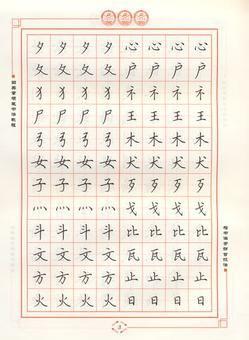 夕夕夕夕心心心心
夂夂夂夂户户户户
犭犭犭犭礻礻礻礻
尸尸尸尸王王王王
弓弓弓弓木木木木
女女女女犬犬犬犬
子子子子歹歹歹歹
灬灬灬灬戈戈戈戈
斗斗斗斗比比比比
文文文文瓦瓦瓦瓦
方方方方止止止止
火火火火日日日日
3